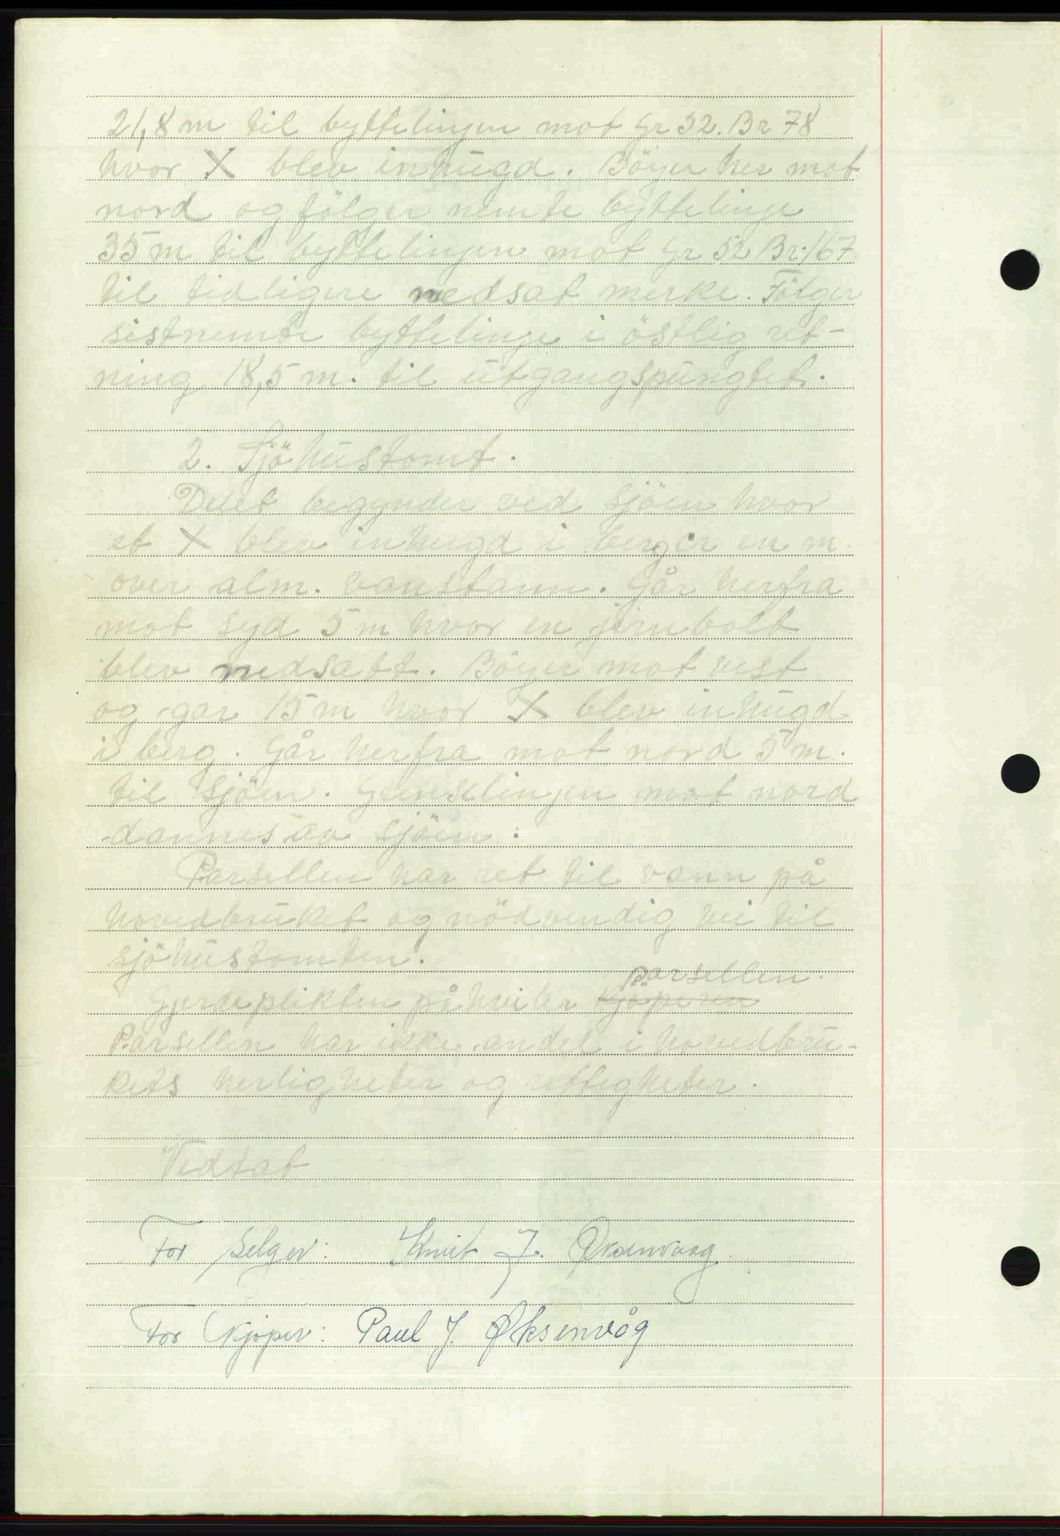 21,8 m til byttelinjen mot Gr 52. Br 78
hvor X blev inhugd. Böyer her mot
nord og fölger nemte byttelinje
35 m til byttelinjen mot Gr 52 Br. 167
til tidligere nedsat merke. Fölger
sistnemte byttelinje i östlig ret-
ning 18,5 m. til utgangspungtet.
2. Sjöhustomt.
Delet begynder ved sjöen hvor
et X blev inhugd i berget en m
over alm. vanstann. Går herfra
mot syd 5 m hvor en jernbolt
blev nedsatt. Böyer mot vest
og gar 15 m hvor X blev inhugd
i berg. Går herfra mot nord 5 m.
til sjöen. Grenselinjen mot nord
dannes av sjöen.
Parsellen har ret til vann på
hovedbruket og nödvendig vei til
sjöhustomten.
Gjerdeplikten påhviler kjöperen parsellen.
Parsellen har ikke andel i hovedbru-
kets herligheter og rettigheter.
Vedtat
For Selger: Knut J. Øksenvaag.
For Kjøper: Paul J. Øksenvåg